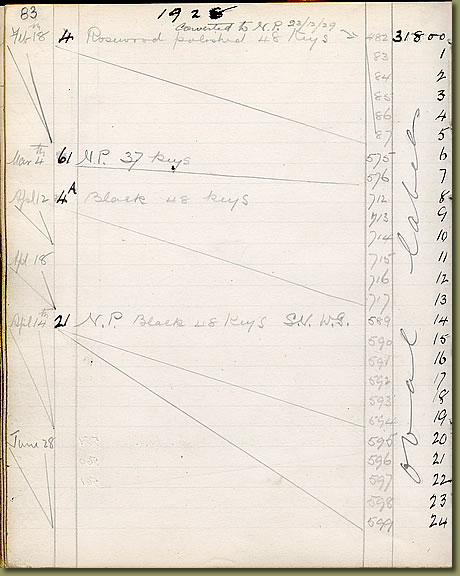 83 1928
Converted to N.P. 22/3/29
Feb 18th 4 Rosewood polished 48 Keys 482 31800
83 1
84 2
85 3
86 4
87 5
Mar 4th 61 N.P. 37 Keys 575 6
576 7
Apl 12 4A Black 48 Keys 712 8
713 9
714 10
715 11
Apl 18 716 12
717 13
Apl 14th 21 N.P. Black 48 Keys S.V. W.S. 589 14
590 15
591 16
592 17
593 18
594 19
June 28 595 20
596 21
597 22
598 23
599 24
oval labels